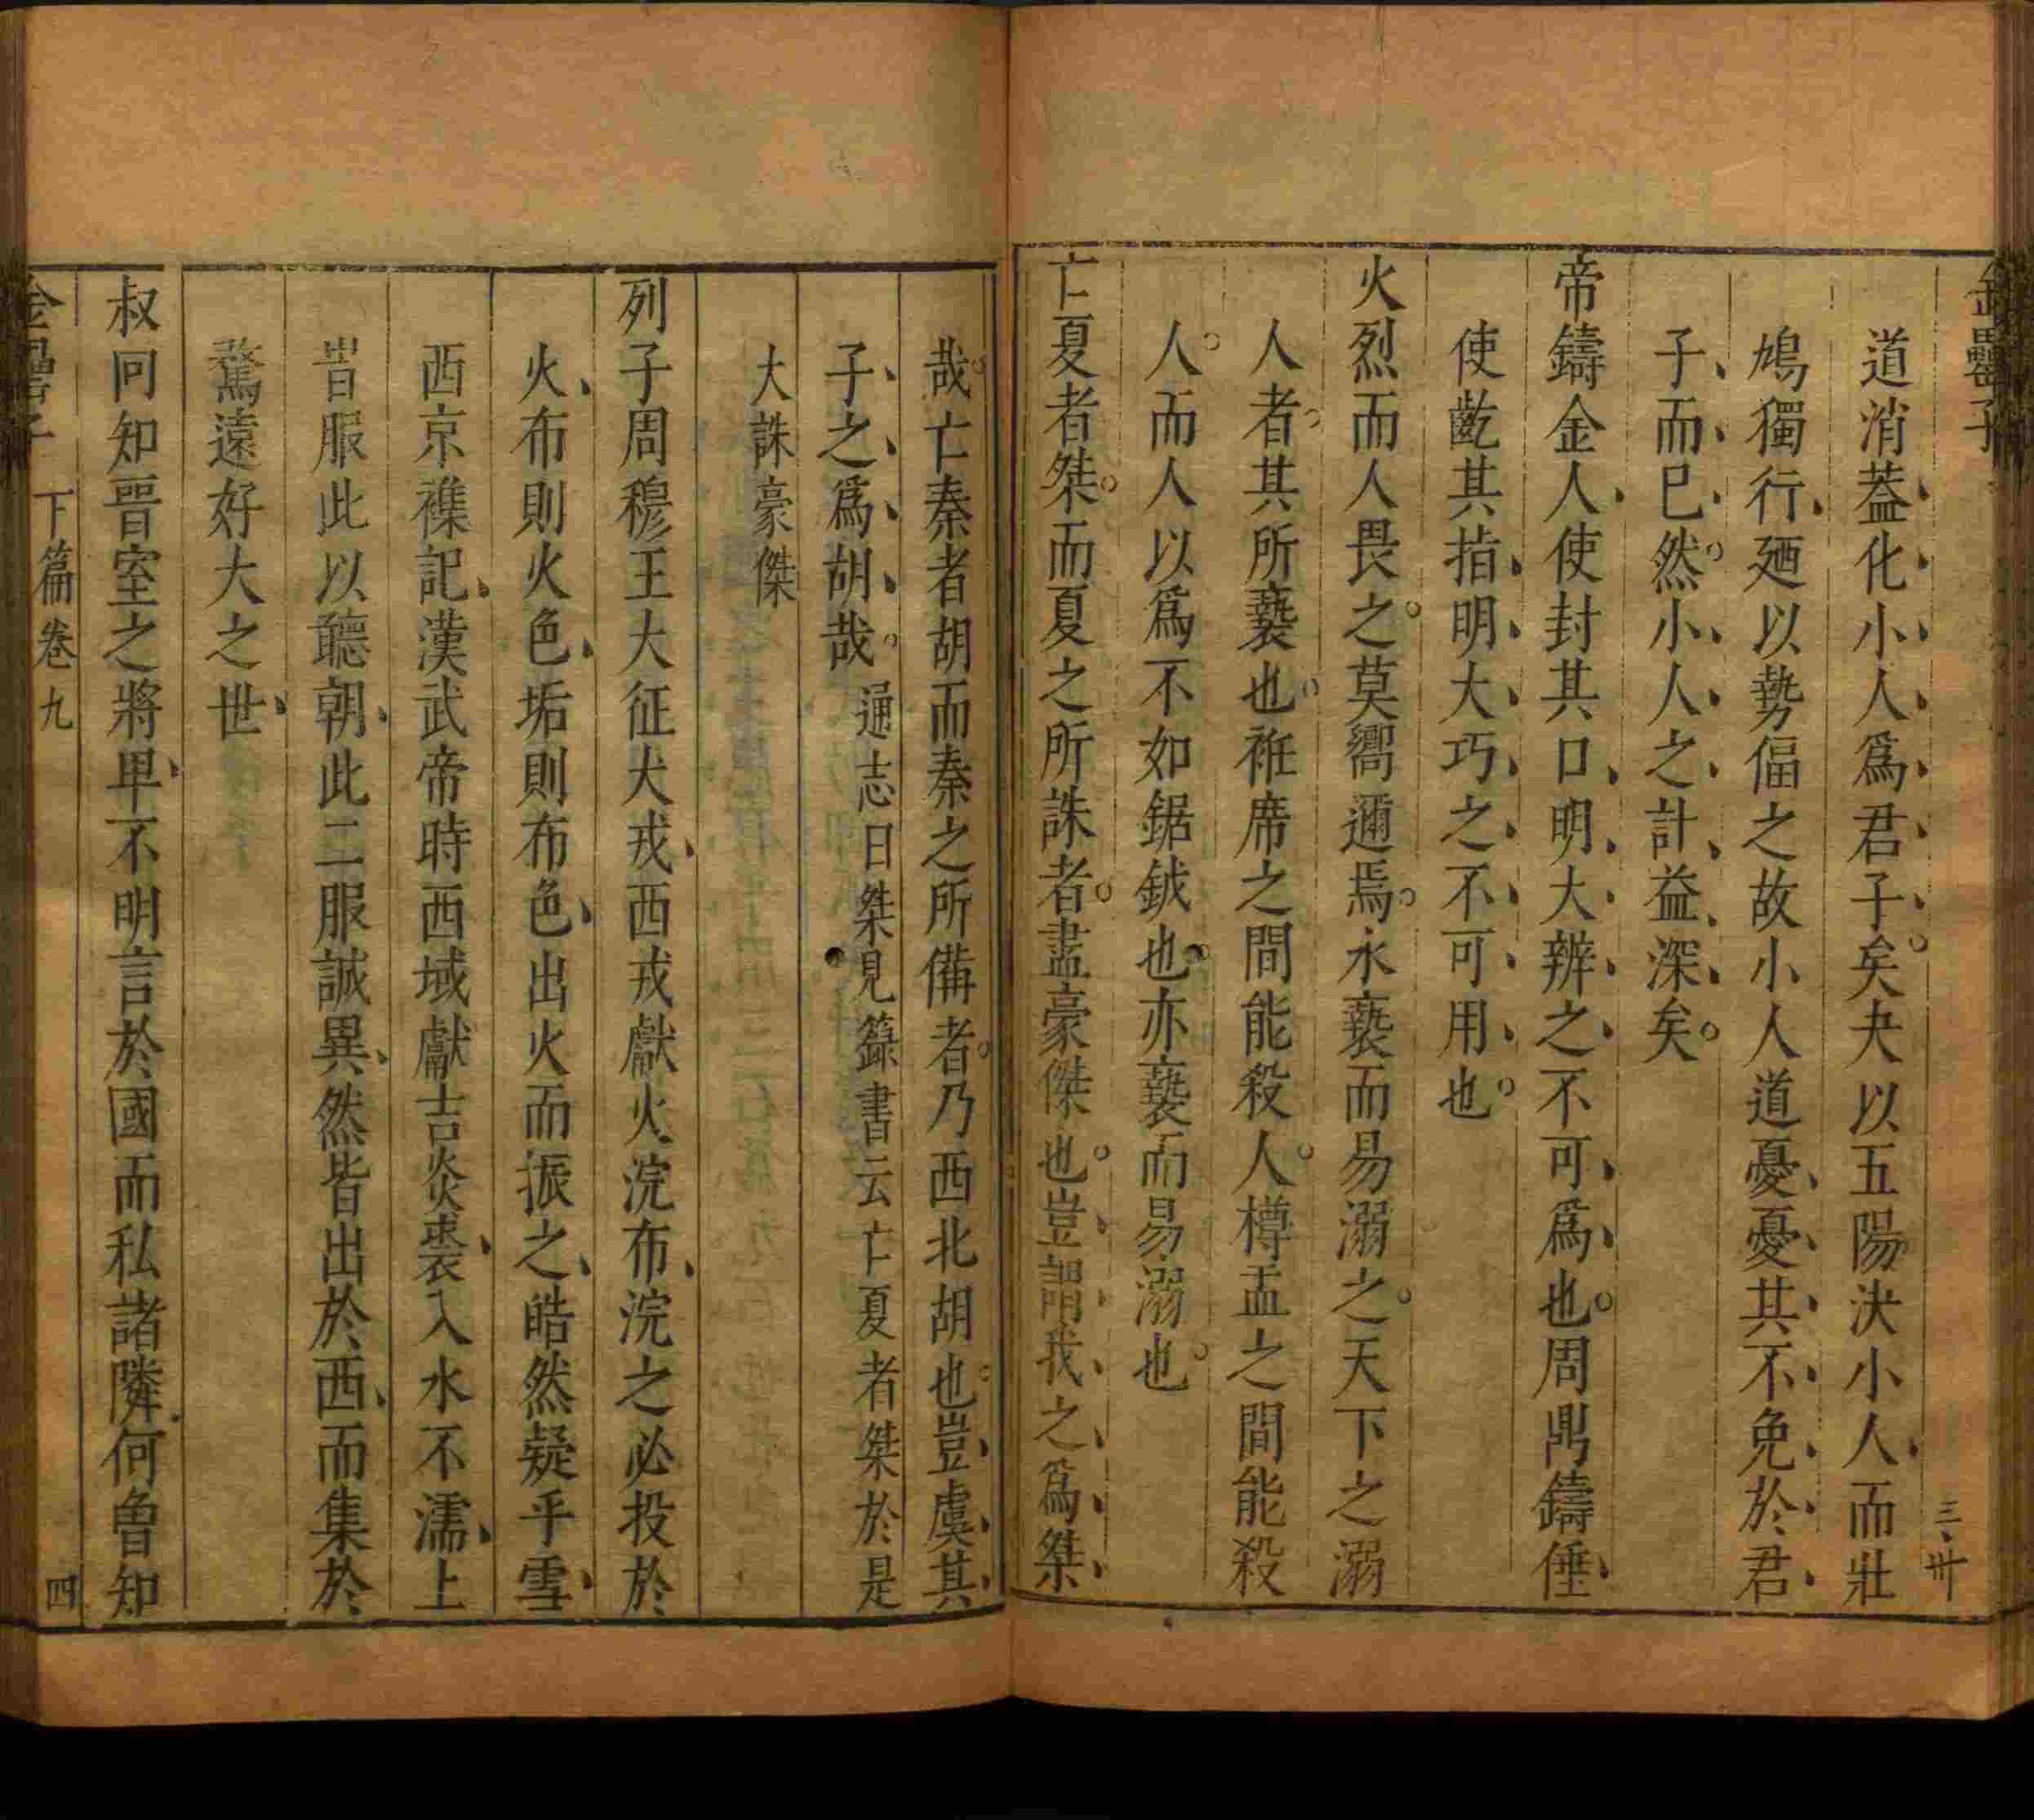 金罍子
三卅
道消葢化小人爲君子矣夬以五陽決小人而壯
鳩獨行廼以勢偪之故小人道憂憂其不免於君
子而已然小人之計益深矣
帝鑄金人使封其口明大辨之不可爲也周鼎鑄倕
使齕其指明大巧之不可用也
火烈而人畏之莫嚮邇焉水褻而易溺之天下之溺
人者其所褻也袵席之間能殺人樽盂之間能殺
人而人以爲不如鋸鉞也亦褻而易溺也
亡夏者桀而夏之所誅者盡豪傑也豈謂我之爲桀
哉亡秦者胡而秦之所備者乃西北胡也豈虞其
子之爲胡哉通志曰桀見籙書云亡夏者桀於是
大誅豪傑
列子周穆王大征犬戎西戎獻火浣布浣之必投於
火布則火色垢則布色出火而振之皓然疑乎雪
西京襍記漢武帝時西域獻吉炎裘入水不濡上
旹服此以聽朝此二服誠異然皆出於西而集於
騖遠好大之世
叔向知晉室之將卑不明言於國而私諸隣何魯知
金罍子 下篇卷九 四